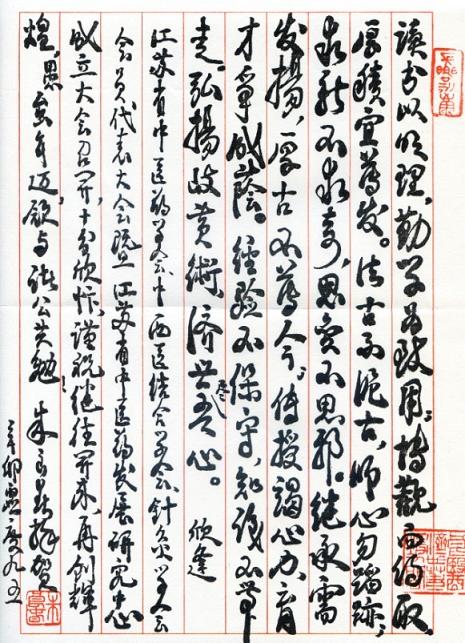 读书以明理,勤学为致用;博观而约取,
厚积宜薄发。法古不泥古,师心勿蹈迹;
求新不求奇,思变不思邪。继承需
发扬,厚古不薄今;传授竭心力,育
才争成荫。经验不保守,知识不带
走。弘扬岐黄術,济世尽吾心。 欣逢
江苏省中医药学会中西医结合学会、针灸学会
会员代表大会暨江苏省中医药发展研究中心
成立大会召开,十分欣忭,谨祝继往开来,再创辉
煌,愚虽年迈,愿与诸公共勉! 朱良春拜贺
辛卯 九五